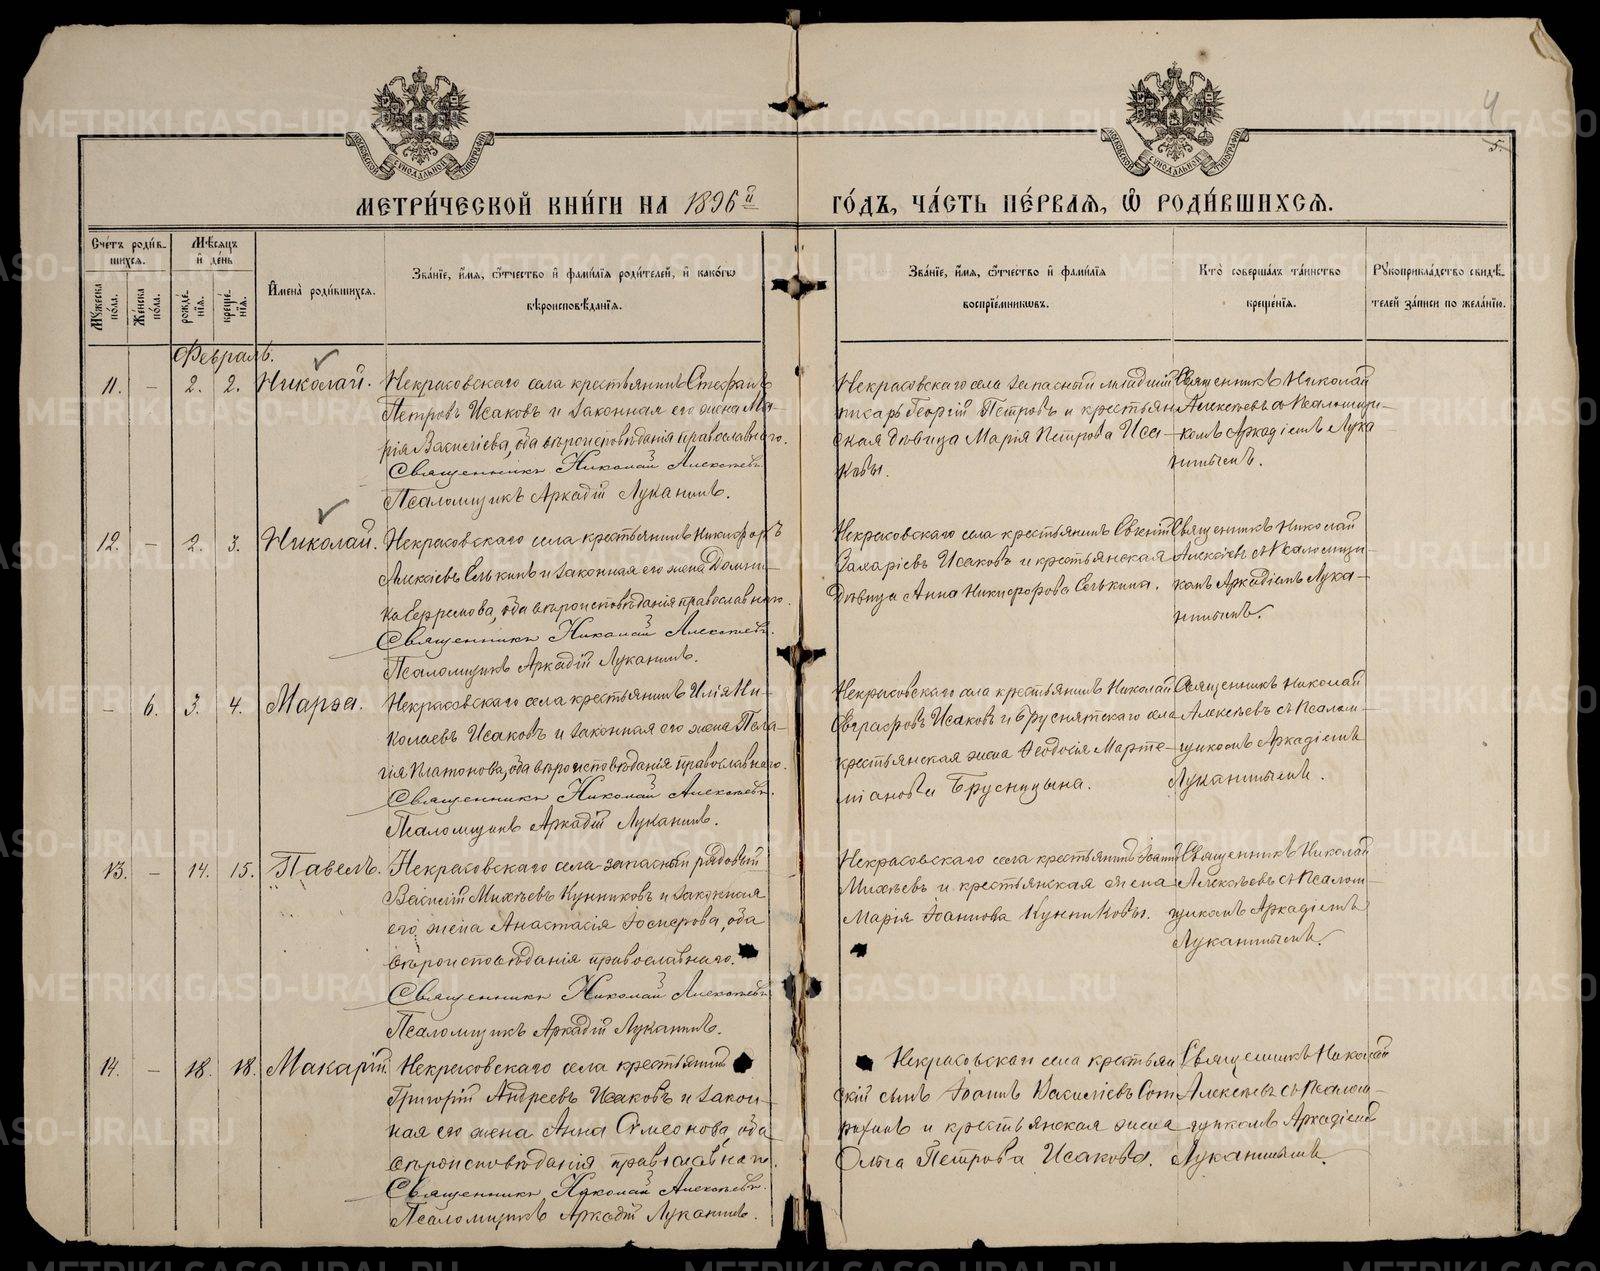 4
5.
МОСКОВСКОЙ СУНОДАЛЬНОЙ ТИПОГРАФІИ
МОСКОВСКОЙ СУНОДАЛЬНОЙ ТИПОГРАФІИ
МЕТРИ́ЧЕСКОЙ КНИ́ГИ НА 1896й ГО́ДЪ, ЧА́СТЬ ПЕ́РВАЯ, Ѽ РОДИ́ВШИХСЯ.
Сче́тъ роди́в-
шихся.
Мѣ́сяцъ
и҆ де́нь
Му́жеска по́ла.
Же́нска по́ла.
рожде́-
нія.
креще́-
нія.
И҆мена̀ роди́вшихся.
Зва́нїе, и҆́мя, ѻ҆́тчество и҆ фами́лїя роди́телей, и҆ како́гѡ
вѣроисповѣ́данїя.
Зва́нїе, и҆́мя, ѻ҆́тчество и҆ фами́лїя
воспрїе́мникѡвъ.
Кто̀ соверша́лъ та́инство
креще́нїя.
Рꙋкоприкла́дство свидѣ́-
телей за́писи по жела́нїю.
Февраль.
11. – 2. 2. Николай.
Некрасовскаго села крестьянинъ Стефанъ
Петровъ Исаковъ и законная его жена Ма-
рія Василіева, оба вѣроисповѣданія православнаго.
Священникъ Николай Алексѣевъ.
Псаломщикъ Аркадій Луканинъ.
Некрасовскаго села запасный младшій
писарь Георгій Петровъ и крестьян-
ская дѣвица Марія Петрова Иса-
ковы.
Священникъ Николай
Алексѣевъ съ Псаломщи-
комъ Аркадіемъ Лука-
нинымъ.
12. – 2. 3. Николай.
Некрасовскаго села крестьянинъ Никифоръ
Алексіевъ Селькинъ и законная его жена Домни-
ка Ефремова, оба вѣроисповѣданія православнаго.
Священникъ Николай Алексѣевъ.
Псаломщикъ Аркадій Луканинъ.
Некрасовскаго села крестьянинъ Евгеній
Захаріевъ Исаковъ и крестьянская
Дѣвица Анна Никифорова Селькина.
Священникъ Николай
Алексіевъ съ Псаломщи-
комъ Аркадіемъ Лука-
нинымъ.
– 6. 3. 4. Марѳа.
Некрасовскаго села крестьянинъ Илія Ни-
колаевъ Исаковъ и законная его жена Пела-
гія Платонова, оба вѣроисповѣданія православнаго.
Священникъ Николай Алексѣевъ.
Псаломщикъ Аркадій Луканинъ.
Некрасовскаго села крестьянинъ Николай
Евграфовъ Исаковъ и Бруснятскаго села
крестьянская жена Ѳеодосія Марте-
міанова Брусницына.
Священникъ Николай
Алексѣевъ съ Псалом-
щикомъ Аркадіемъ
Луканинымъ.
13. – 14. 15. Павелъ.
Некрасовскаго села запасный рядовый
Василій Михѣевъ Кунниковъ и законная
его жена Анастасія Іосифова, оба
вѣроисповѣданія православнаго.
Священникъ Николай Алексѣевъ
Псаломщикъ Аркадій Луканинъ.
Некрасовскаго села крестьянинъ Іоаннъ
Михѣевъ и крестьянская жена
Марія Іоаннова Кунниковы.
Священникъ Николай
Алексѣевъ съ Псалом-
щикомъ Аркадіемъ
Луканинымъ.
14. – 18. 18. Макарій.
Некрасовскаго села крестьянинъ
Григорій Андреевъ Исаковъ и закон-
ная его жена Анна Симеонова, оба
вѣроисповѣданія православнаго.
Священникъ Николай Алексѣевъ.
Псаломщикъ Аркадій Луканинъ.
Некрасовскаго села крестьян-
скій сынъ Іоаннъ Василіевъ
и крестьянская жена
Ольга Петрова Исакова.
Священникъ Николай
Алексѣевъ съ Псалом-
щикомъ Аркадіемъ
Луканинымъ.
METRIKI.GASO-URAL.RU